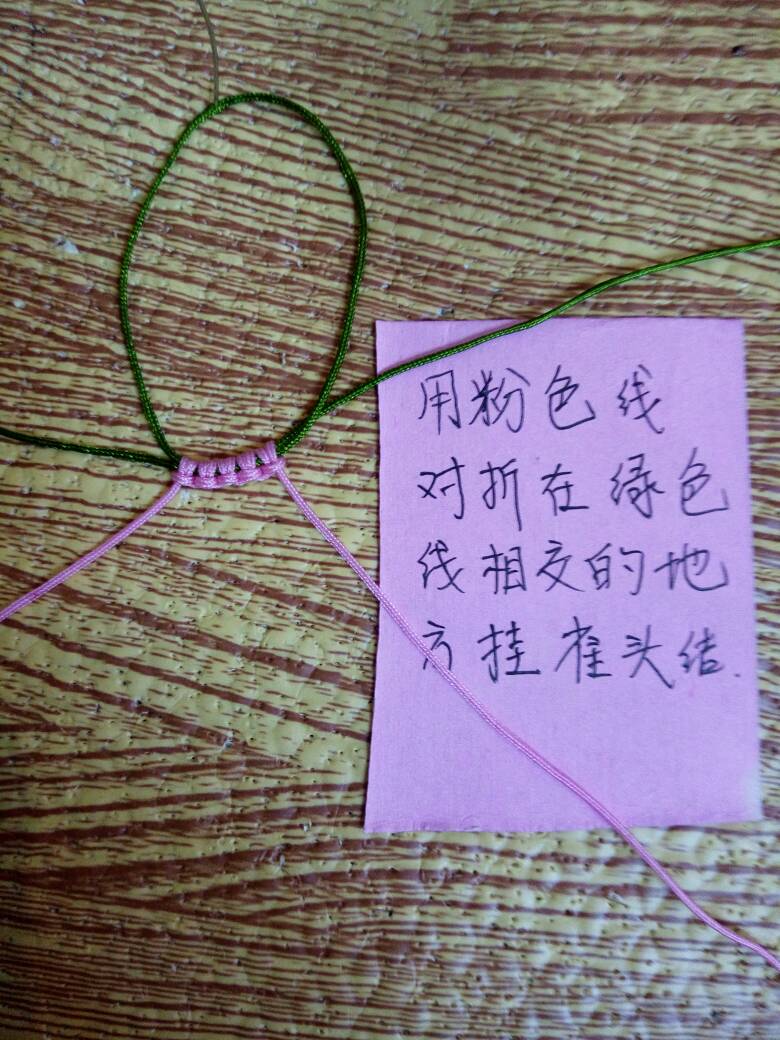 用粉色线
对折在绿色
线相交的地
方挂雀头结.